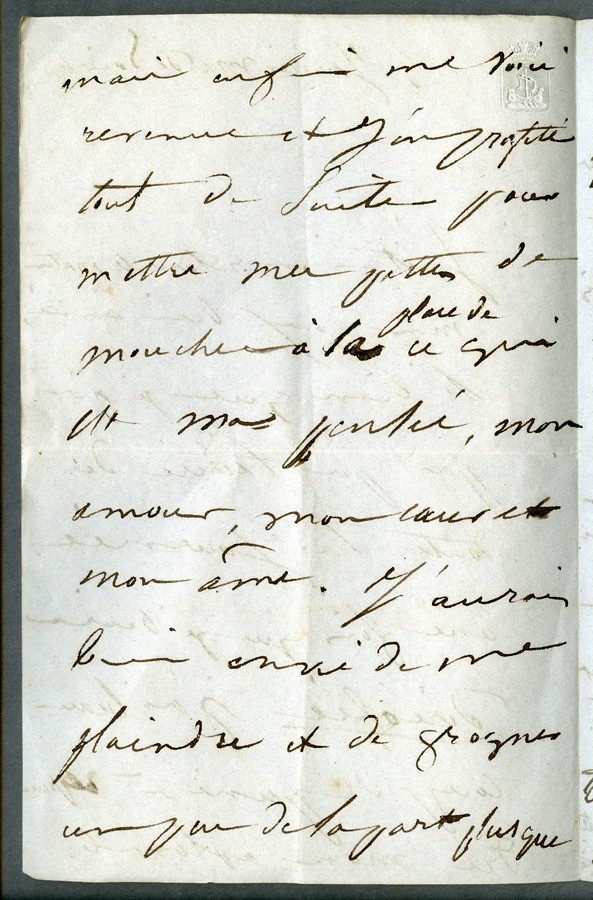 mais enfin me voici
revenue et j'en profite
tout de suite pour
mettre mes pattes de
place de
mouches à la ce qui
est ma pensée, mon
amour, mon cœur et
mon âme. J'aurais
bien envie de me
plaindre et de grogner
un peu de la part plus que